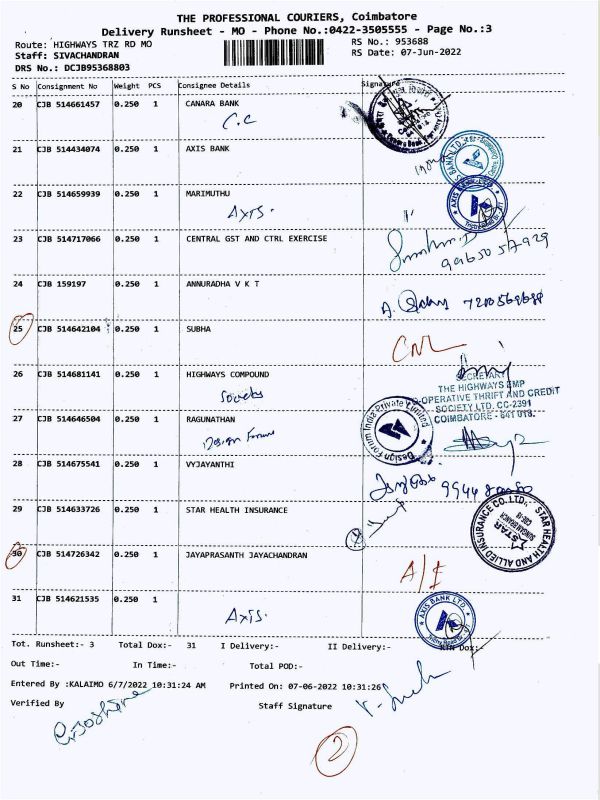 THE PROFESSIONAL COURIERS, Coimbatore
Delivery Runsheet - MO - Phone No.:0422-3505555 - Page No.:3
Route: HIGHWAYS TRZ RD MO
RS No.: 953688
Staff: SIVACHANDRAN
RS Date: 07-Jun-2022
DRS No.: DCJB95368803
S No Consignment No Weight PCS Consignee Details Signature
20 CJB 514661457 0.250 1 CANARA BANK
C.C
21 CJB 514434074 0.250 1 AXIS BANK
22 CJB 514659939 0.250 1 MARIMUTHU
AXIS.
AXIS BANK LTD.
23 CJB 514717066 0.250 1 CENTRAL GST AND CTRL EXERCISE
9965057929
24 CJB 159197 0.250 1 ANNURADHA V K T
25 CJB 514642104 0.250 1 SUBHA
CNL
26 CJB 514681141 0.250 1 HIGHWAYS COMPOUND
SECRETARY
THE HIGHWAYS EMP
CO-OPERATIVE THRIFT AND CREDIT
SOCIETY LTD. CC-2391
COIMBATORE - 641 018.
27 CJB 514646504 0.250 1 RAGUNATHAN
Design Forum
Design Forum India Private Limited
28 CJB 514675541 0.250 1 VYJAYANTHI
29 CJB 514633726 0.250 1 STAR HEALTH INSURANCE
STAR HEALTH AND ALLIED INSURANCE CO.LTD.,
STAR
30 CJB 514726342 0.250 1 JAYAPRASANTH JAYACHANDRAN
A/I
31 CJB 514621535 0.250 1
AXIS.
AXIS BANK LTD.
Tot. Runsheet:- 3 Total Dox:- 31 I Delivery:- II Delivery:- RTN Dox:-
Out Time:- In Time:- Total POD:-
Entered By :KALAIMO 6/7/2022 10:31:24 AM Printed On: 07-06-2022 10:31:26
Verified By Staff Signature
2